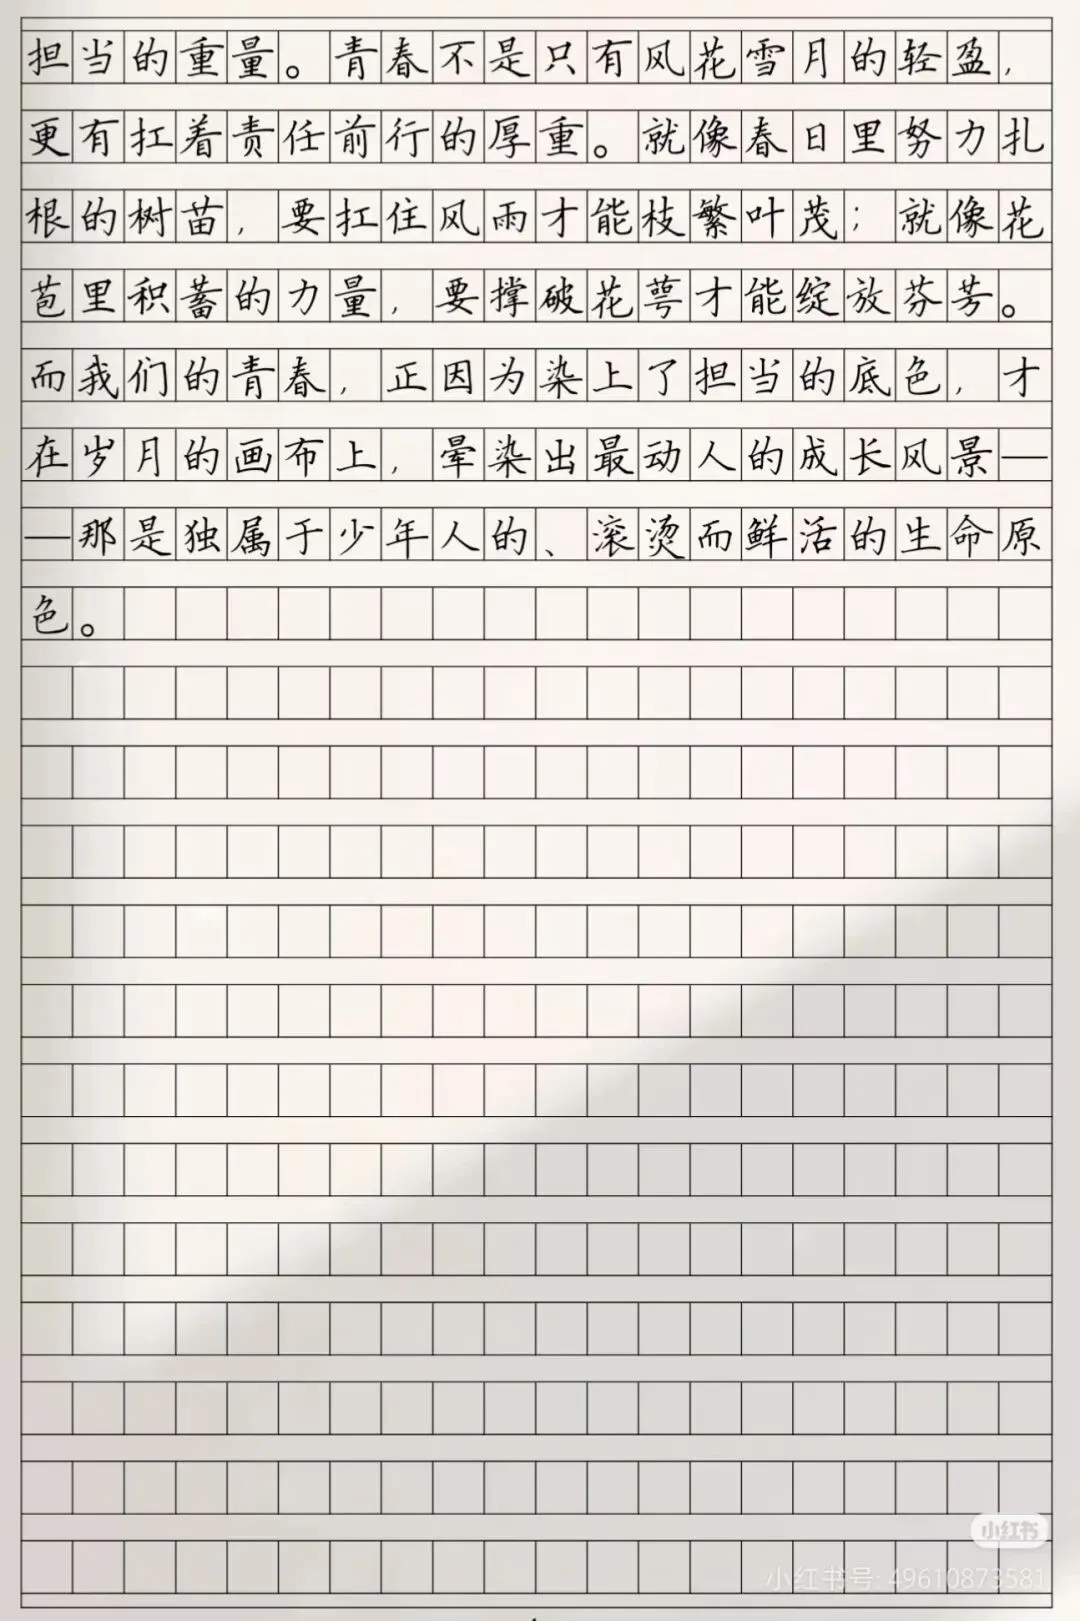 担当的重量。青春不是只有风花雪月的轻盈，
更有扛着责任前行的厚重。就像春日里努力扎
根的树苗，要扛住风雨才能枝繁叶茂；就像花
苞里积蓄的力量，要撑破花萼才能绽放芬芳。
而我们的青春，正因为染上了担当的底色，才
在岁月的画布上，晕染出最动人的成长风景—
—那是独属于少年人的、滚烫而鲜活的生命原
色。
小红书
小红书号: 49610873581